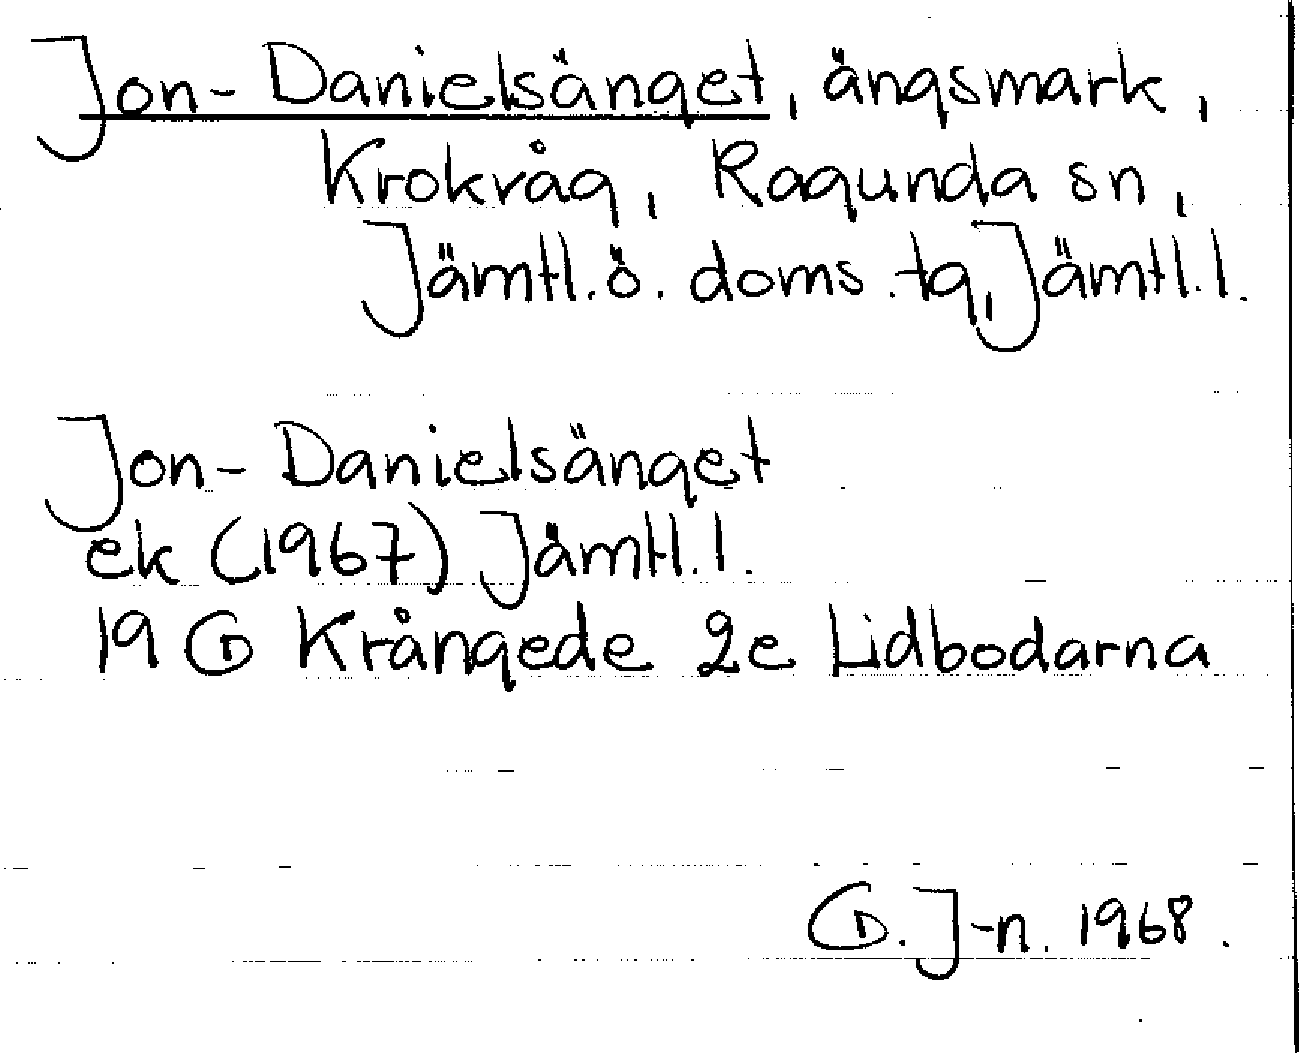 Jon-Danielsänget, ängsmark,
Krokvåg, Ragunda sn,
Jämtl.ö. doms.tg, Jämtl.l.
Jon-Danielsänget
ek (1967) Jämtl.l.
19 G Krångede 2e Lidbodarna
G. J-n. 1968.